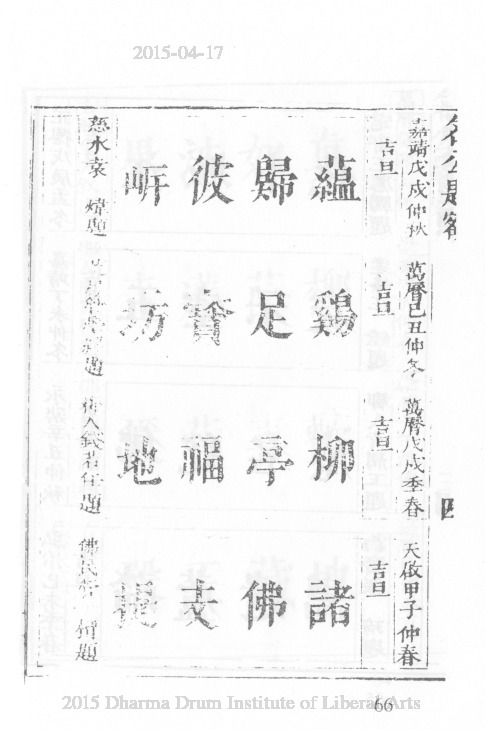 2015-04-17
名公題
四
嘉靖戊戌仲秋
吉旦
蘊歸彼
慈水袁煒題
萬曆己丑仲冬
吉旦
鷄足寳坊
題
萬曆戊戌季春
吉旦
柳亭福地
人錢若任題
天啟甲子仲春
吉旦
諸佛支提
佛民 題
2015 Dharma Drum Institute of Liberal Arts
66